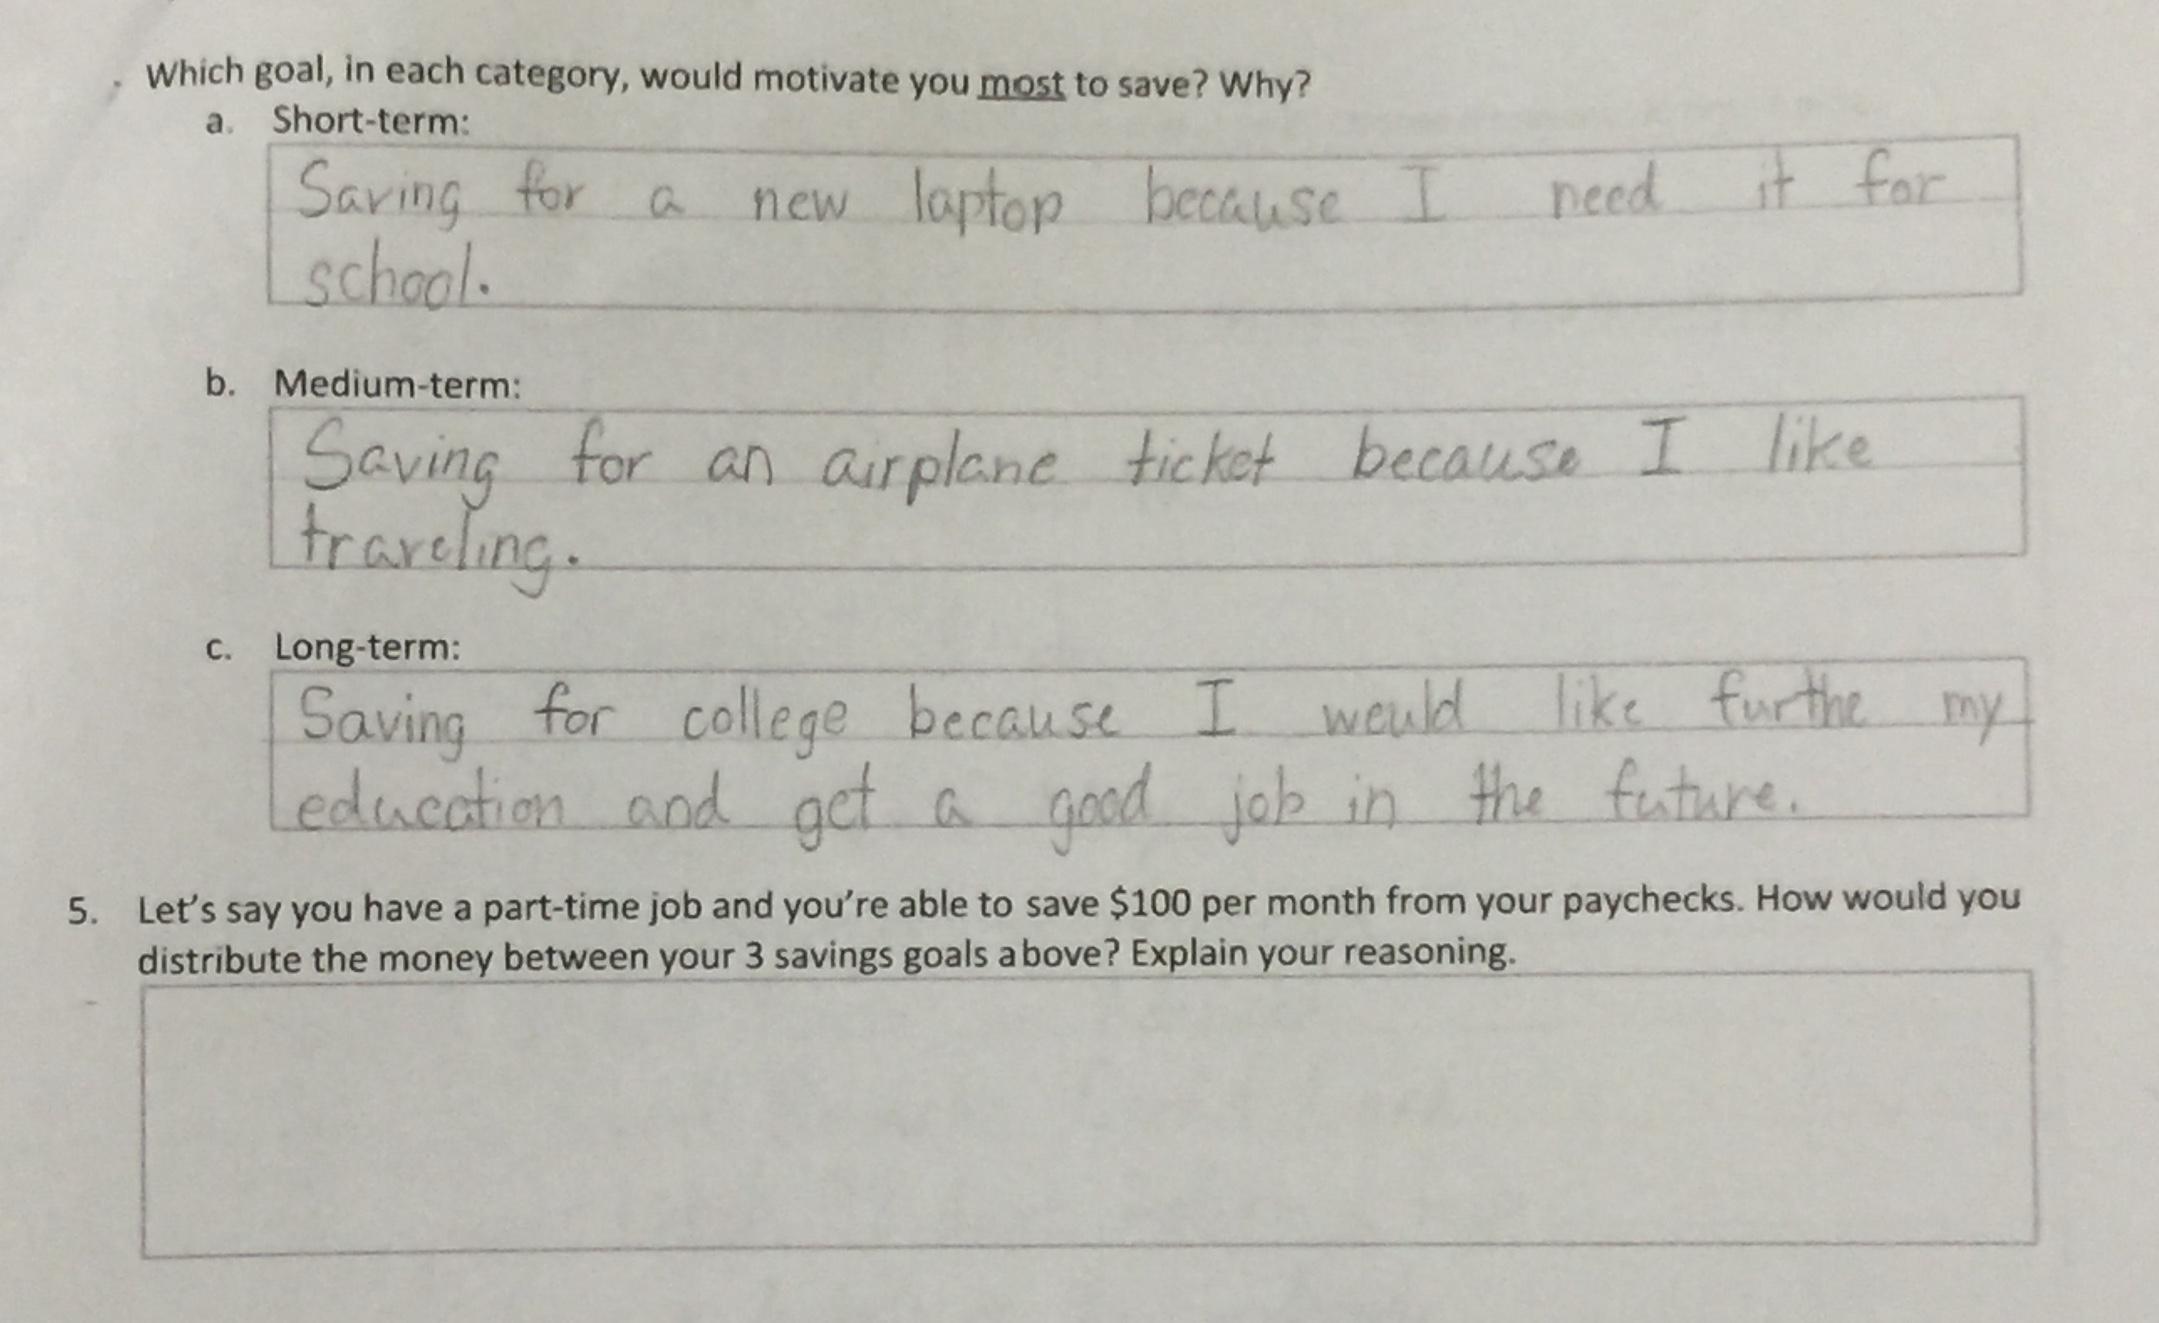 Which goal, in each category, would motivate you most to save? Why?
a. Short-term:
Saving for a new laptop because I need it for
school.
b. Medium-term:
Saving for an airplane ticket because I like
traveling.
c. Long-term:
Saving for college because I would like furthe my
education and get a good job in the future.
5. Let's say you have a part-time job and you're able to save $100 per month from your paychecks. How would you
distribute the money between your 3 savings goals above? Explain your reasoning.